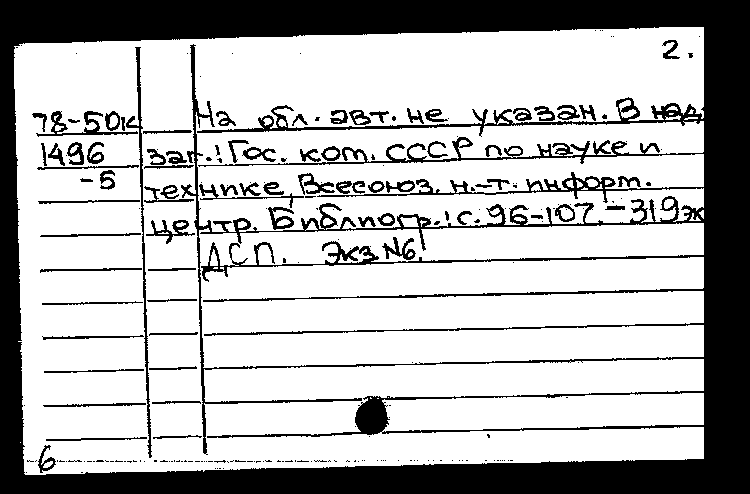 2.
78-50к На обл. авт. не указан. В над
1496 заг.: Гос. ком. СССР по науке и
-5 технике, Всесоюз. н.-т. информ.
центр. Библиогр.: с. 96-107. - 319 эк
ДСП. Экз N6.
6